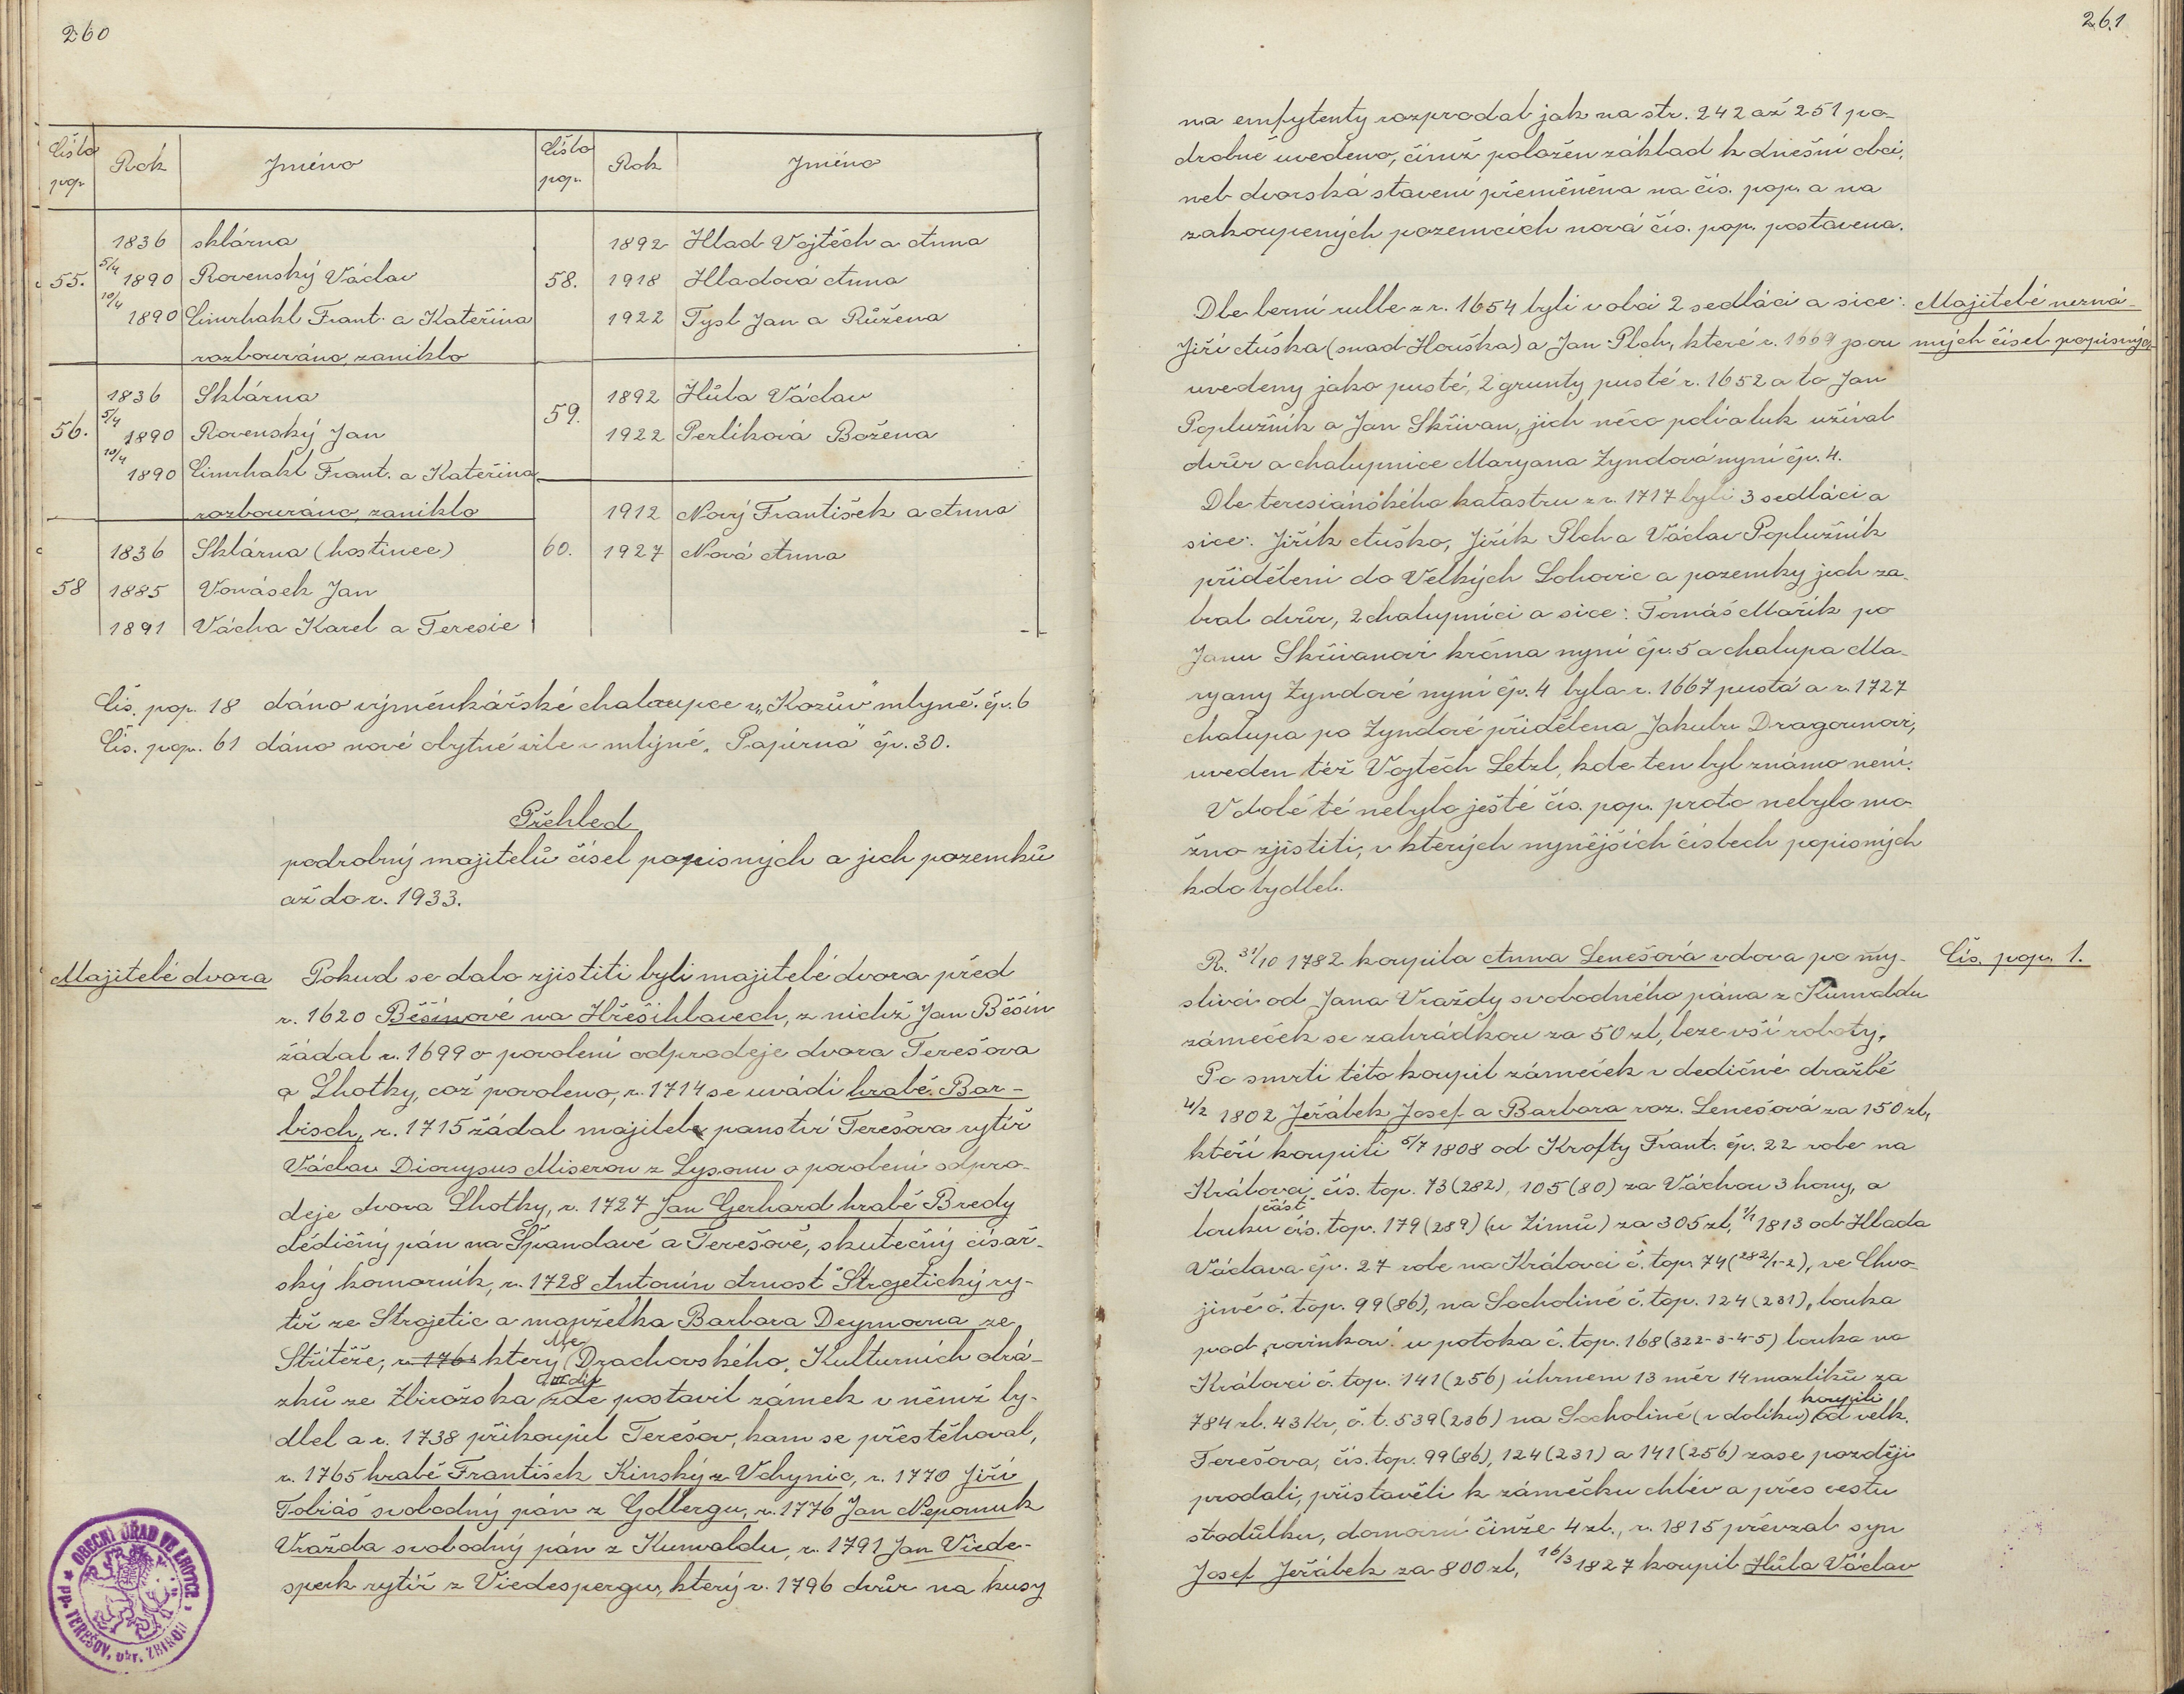 260
Číslo pop. | Rok | Jméno | Číslo pop. | Rok | Jméno
1836 sklárna
55. 5/4 1890 Rovenský Václav
10/4 1890 Cimrhakl Frant. a Kateřina
rozbouráno, zaniklo
1836 Sklárna
56. 5/4 1890 Rovenský Jan
10/4 1890 Cimrhakl Frant. a Kateřina
rozbouráno, zaniklo
1836 Sklárna (hostinec)
58 1885 Vonásek Jan
1891 Vácha Karel a Teresie
1892 Hlad Vojtěch a Anna
58. 1918 Hladová Anna
1922 Tysl Jan a Růžena
59. 1892 Hůla Václav
1922 Perlíková Božena
1912 Nový František a Anna
60. 1927 Nová Anna
Čís. pop. 18 dáno výměnkářské chaloupce v „Kozův" mlýně čp. 6
Čís. pop. 61 dáno nové obytné vile v mlýně „Papírna" čp. 30.
Přehled
podrobný majitelů čísel popisných a jich pozemků
až do r. 1933.
Majitelé dvora
Pokud se dalo zjistiti byli majitelé dvora před
r. 1620 Běšínové na Hřešihlavech, z nichž Jan Běšín
žádal r. 1699 o povolení odprodeje dvora Terešova
a Lhotky, což povoleno, r. 1714 se uvádí hrabě Bar-
bisch, r. 1715 žádal majitel panství Terešova rytíř
Václav Dionysus Miseron z Lysonu o povolení odpro-
deje dvora Lhotky, r. 1727 Jan Gerhard hrabě Bredy
dědičný pán na Špandavě a Terešově, skutečný císař-
ský komorník, r. 1728 Antonín Arnošt Strojetický ry-
tíř ze Strojetic a manželka Barbara Deymovna ze
Střítěže, r. 176 který dle Drachovského „Kulturních obrá-
zků ze Zbirožska zde postavil zámek v němž by-
dlel a r. 1738 přikoupil Terešov, kam se přestěhoval,
r. 1765 hrabě František Kinský z Vchynic, r. 1770 Jiří
Tobiáš svobodný pán z Golbergu, r. 1776 Jan Nepomuk
Vražda svobodný pán z Kunvaldu, r. 1791 Jan Viede-
sperk rytíř z Viedespergu, který r. 1796 dvůr na kusy
OBECNÍ ÚŘAD VE LHOTCE
pp. TEREŠOV, okr. ZBIROH
261
na emfytenty rozprodal jak na str. 242 až 251 po-
drobně uvedeno, čímž položen základ k dnešní obci,
neb dvorská stavení přeměněna na čís. pop. a na
zakoupených pozemcích nová čís. pop. postavena.
Majitelé nezná-
mých čísel popisných
Dle berní rulle z r. 1654 byli v obci 2 sedláci a sice:
Jiří Auška (snad Houška) a Jan Plch, které r. 1669 jsou
uvedeny jako pusté, 2 grunty pusté r. 1652 a to Jan
Poplužník a Jan Skřivan, jich něco polí a luk užíval
dvůr a chalupnice Maryana Zyndová nyní čp. 4.
Dle teresiánského katastru z r. 1717 byli 3 sedláci a
sice: Jiřík Auško, Jiřík Plch a Václav Poplužník
přiděleni do Velkých Lohovic a pozemky jich za-
bral dvůr, 2 chalupníci a sice: Tomáš Mařík po
Janu Skřivanovi krčma nyní čp. 5 a chalupa Ma-
ryany Zyndové nyní čp. 4 byla r. 1667 pustá a r. 1727
chalupa po Zyndové přidělena Jakubu Dragounovi,
uveden též Vojtěch Letzl, kde ten byl známo není.
V době té nebylo ještě čís. pop. proto nebylo mo-
žno zjistiti, v kterých nynějších číslech popisných
kdo bydlel.
Čís. pop. 1.
R. 31/10 1782 koupila Anna Lenešová vdova po my-
slivci od Jana Vraždy svobodného pána z Kunvaldu
zámeček se zahrádkou za 50 zl, beze vší roboty.
Po smrti této koupil zámeček v dědičné dražbě
4/2 1802 Jeřábek Josef a Barbora roz. Lenešová za 150 zl,
kteří koupili 5/7 1808 od Krofty Frant. čp. 22 role na
Královci čís. top. 73 (282), 105 (80) za Váchou 3 hony, a
část
louku čís. top. 179 (289) (u Zímů) za 305 zl, 1/1 1813 od Hlada
Václava čp. 27 role na Královci č. top. 74 (282/1-2), ve Chvo-
jině č. top. 99 (86), na Socholině č. top. 124 (231), louka
pod „rovinkou" u potoka č. top. 168 (322-3-4-5) louka na
Královci č. top. 141 (256) úhrnem 13 měr 14 mazlíků za
784 zl. 43 Kr, č. t. 539 (236) na Socholině (v dolíku) koupili od velk.
Terešova, čís. top. 99 (86), 124 (231) a 141 (256) zase později
prodali, přistavěli k zámečku chlév a přes cestu
stodůlku, domovní činže 4 zl., r. 1815 převzal syn
Josef Jeřábek za 800 zl, 16/3 1827 koupil Hůla Václav